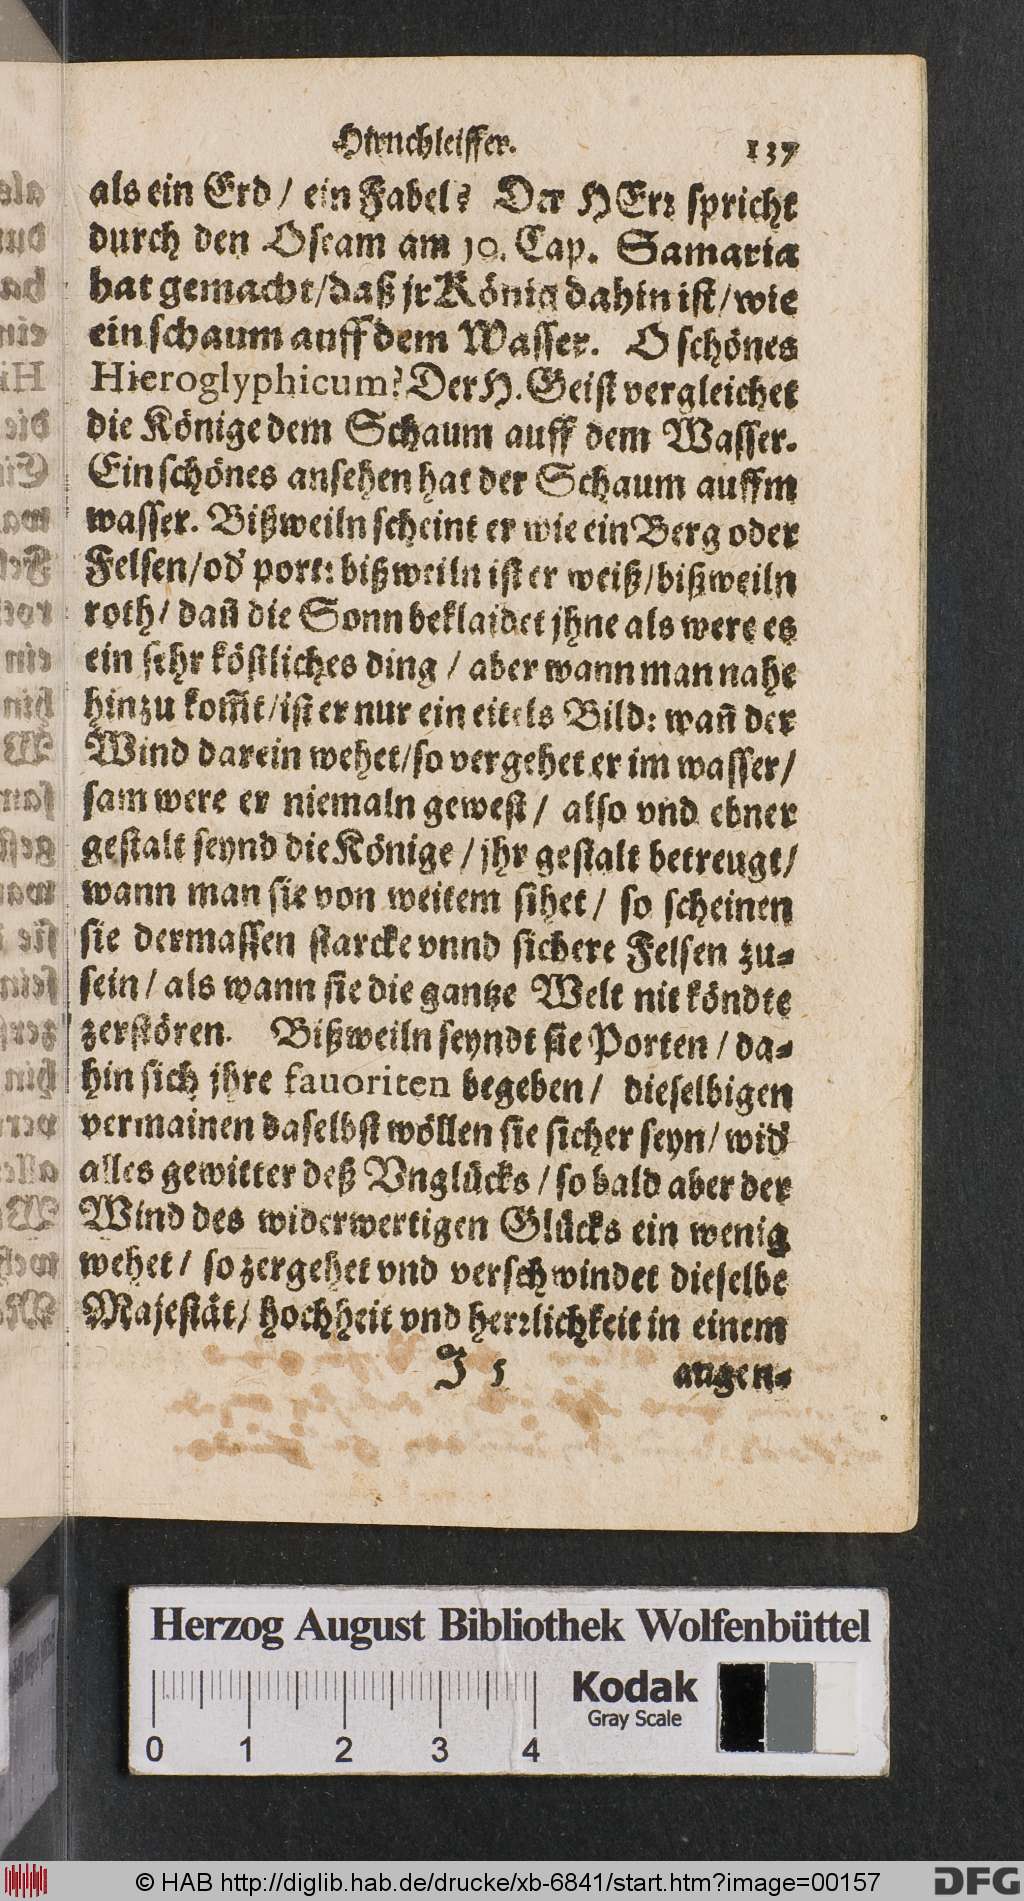 Hirnschleiffer. 137
als ein Erd / ein Fabel? Der HErr spricht
durch den Oseam am 10. Cap. Samaria
hat gemacht/daß jr König dahin ist/wie
ein schaum auff dem Wasser. O schönes
Hieroglyphicum? Der H. Geist vergleichet
die Könige dem Schaum auff dem Wasser.
Ein schönes ansehen hat der Schaum auffm
wasser. Bißweiln scheint er wie ein Berg oder
Felsen/od' port: bißweiln ist er weiß/bißweiln
roth/ dañ die Sonn beklaidet jhne als were es
ein sehr köstliches ding / aber wann man nahe
hinzu kom̃t/ist er nur ein eitels Bild: wañ der
Wind darein wehet/so vergehet er im wasser/
sam were er niemaln gewest / also vnd ebner
gestalt seynd die Könige / jhr gestalt betreugt/
wann man sie von weitem sihet / so scheinen
sie dermassen starcke vnnd sichere Felsen zu-
sein / als wann sie die gantze Welt nit köndte
zerstören. Bißweiln seyndt sie Porten / da-
hin sich jhre fauoriten begeben / dieselbigen
vermainen daselbst wöllen sie sicher seyn/ wid'
alles gewitter deß Vnglücks / so bald aber der
Wind des widerwertigen Glücks ein wenig
wehet / so zergehet vnd verschwindet dieselbe
Majestät/ hochheit vnd herrlichkeit in einem
J 5 augen-
Herzog August Bibliothek Wolfenbüttel
Kodak
Gray Scale
0 1 2 3 4
© HAB http://diglib.hab.de/drucke/xb-6841/start.htm?image=00157
DFG